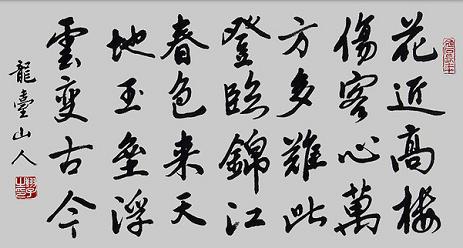 花近高楼
傷客心萬
方多難此
登臨錦江
春色来天
地玉壘浮
雲變古今
龍臺山人